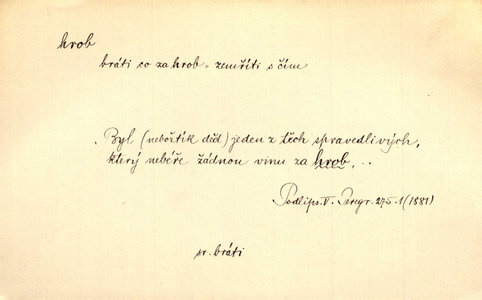 hrob
bráti co za hrob = zemříti s čím
„Byl (nebožtík děd) jeden z těch spravedlivých,
který nebéře žádnou vinu za hrob, ..
Podlips. V. Peregr. 275.1 (1881)
sr. bráti